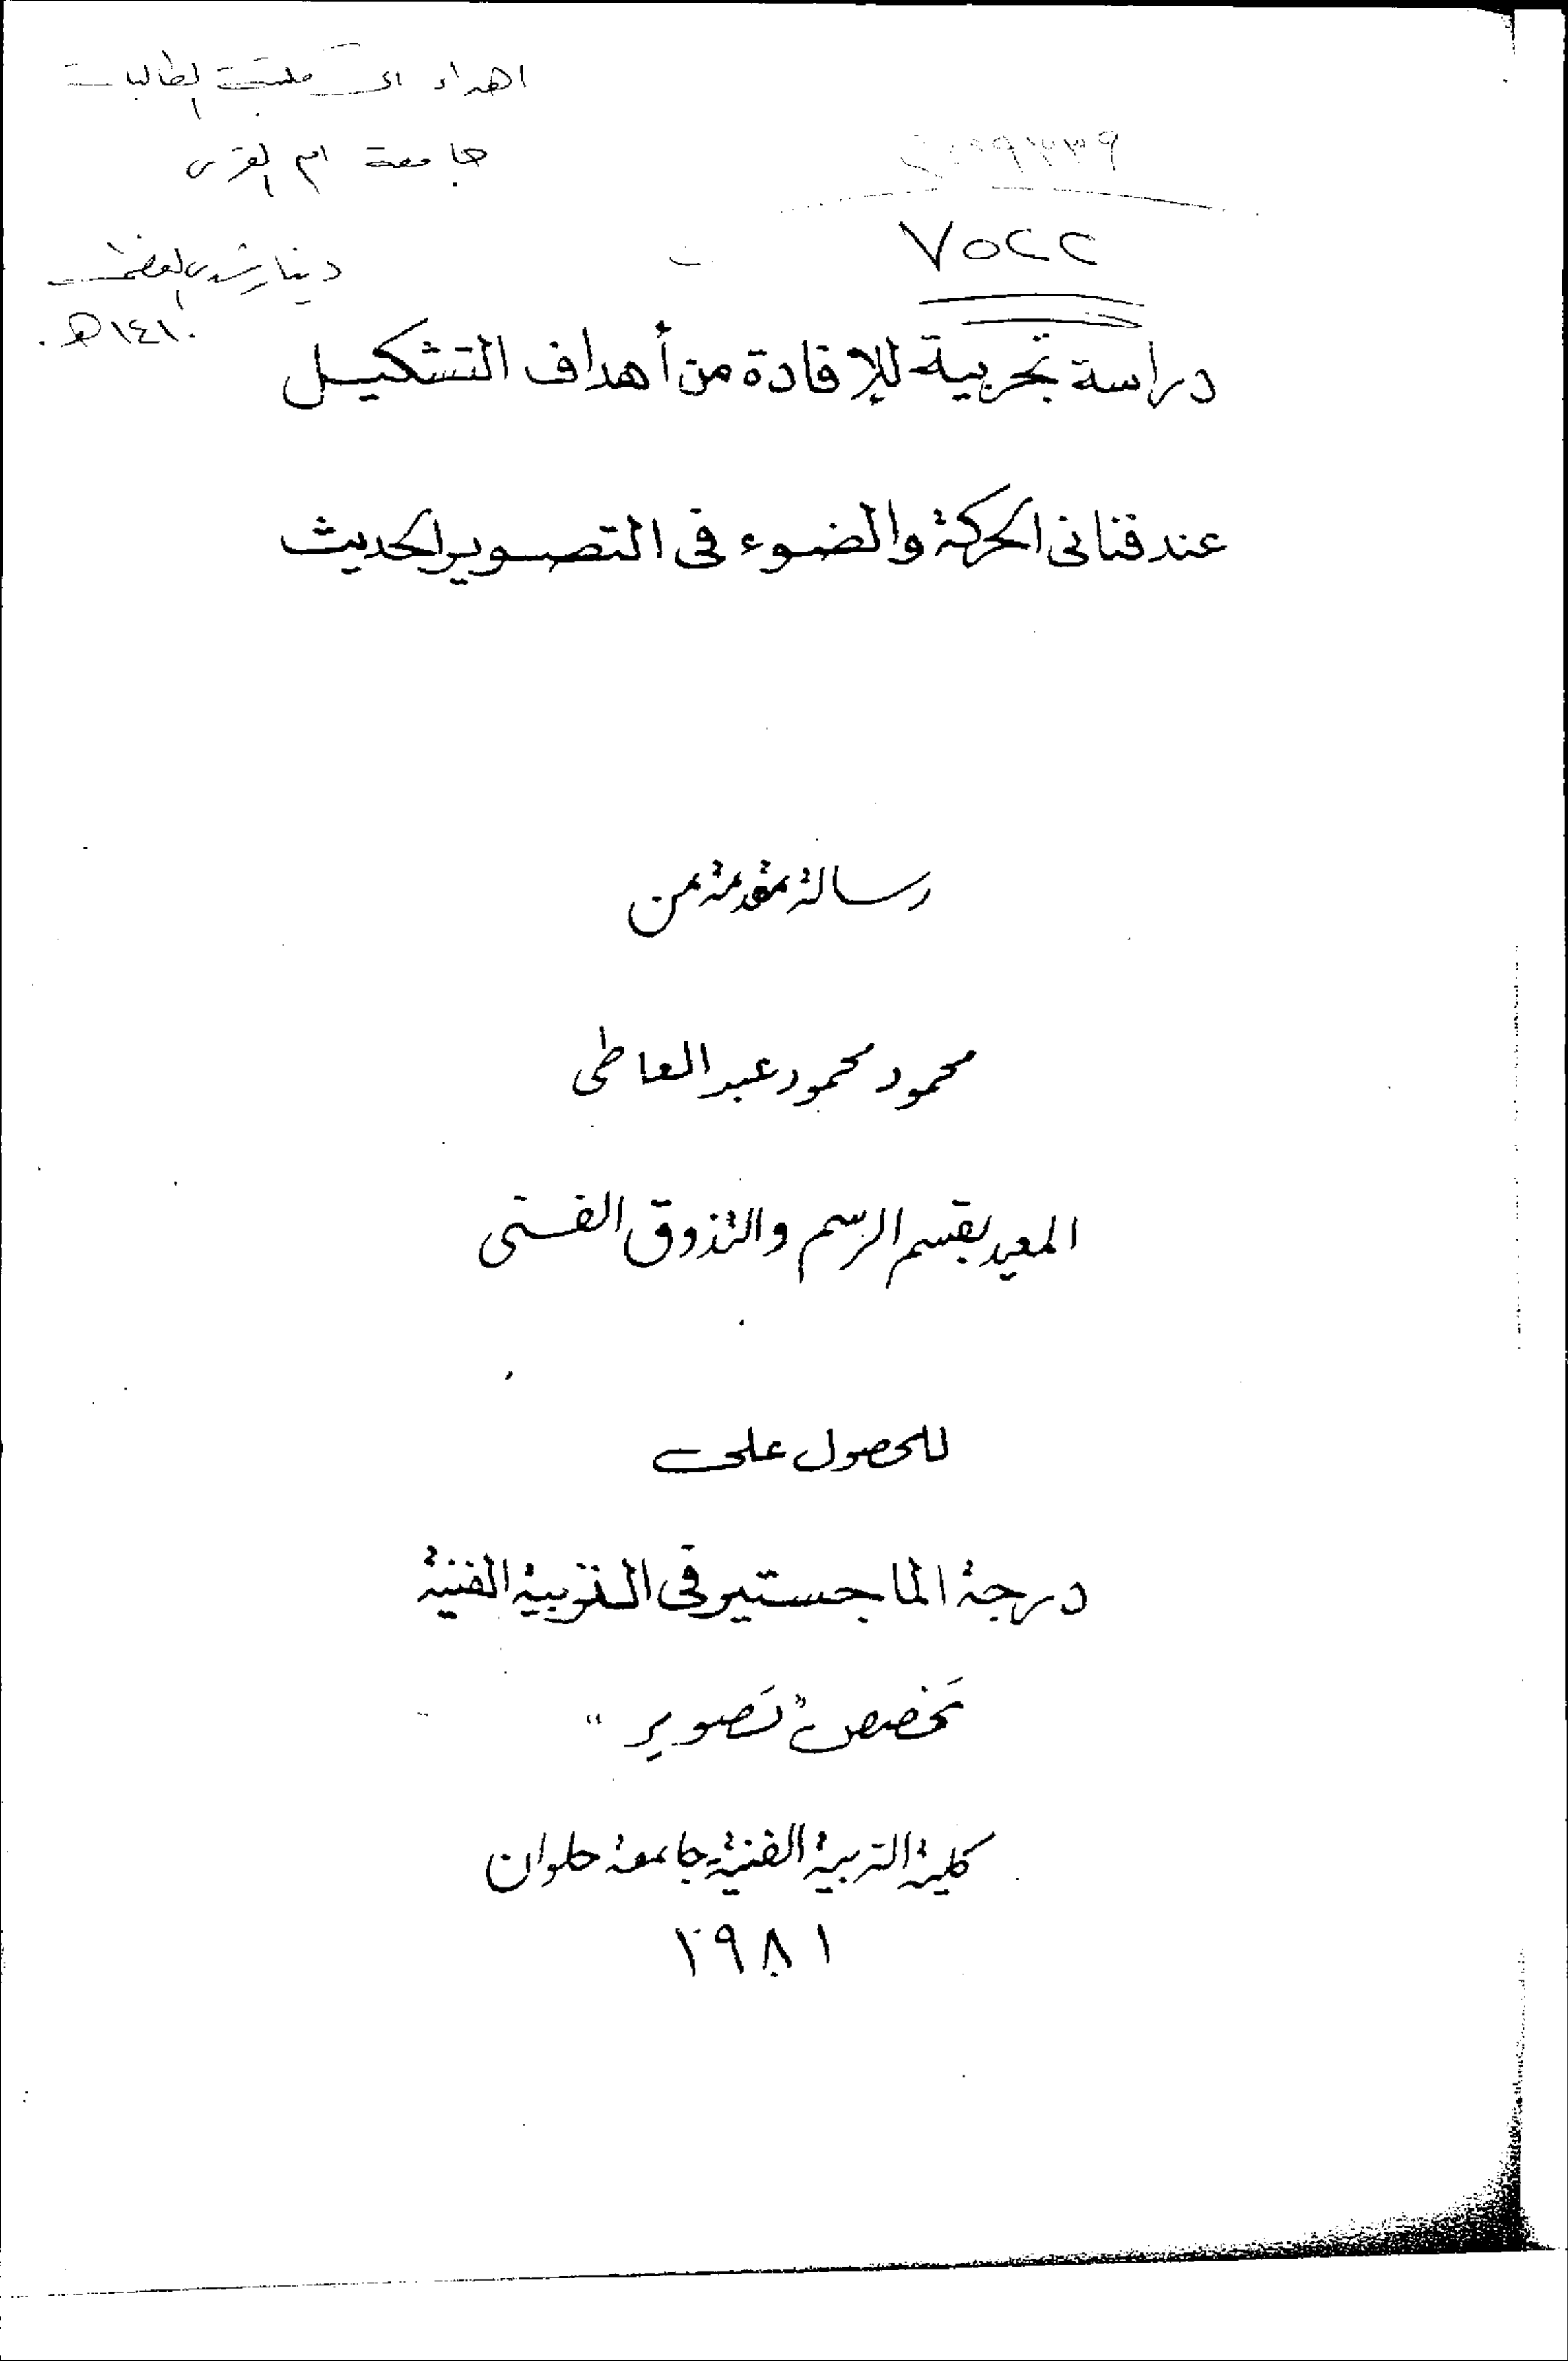 اهداء الى مكتبة الطالبات
جامعة ام القرى
١٤١٠هـ
٧٥٢٢
دراسة تجريبية للإفادة من أهداف التشكيل
عند فنانى الحركة والضوء فى التصوير الحديث
رسالة مقدمة من
محمود محمود عبد العاطى
المعيد بقسم الرسم والتذوق الفنى
للحصول على
درجة الماجستير فى التربية الفنية
تخصص "تصوير"
كلية التربية الفنية - جامعة حلوان
١٩٨١